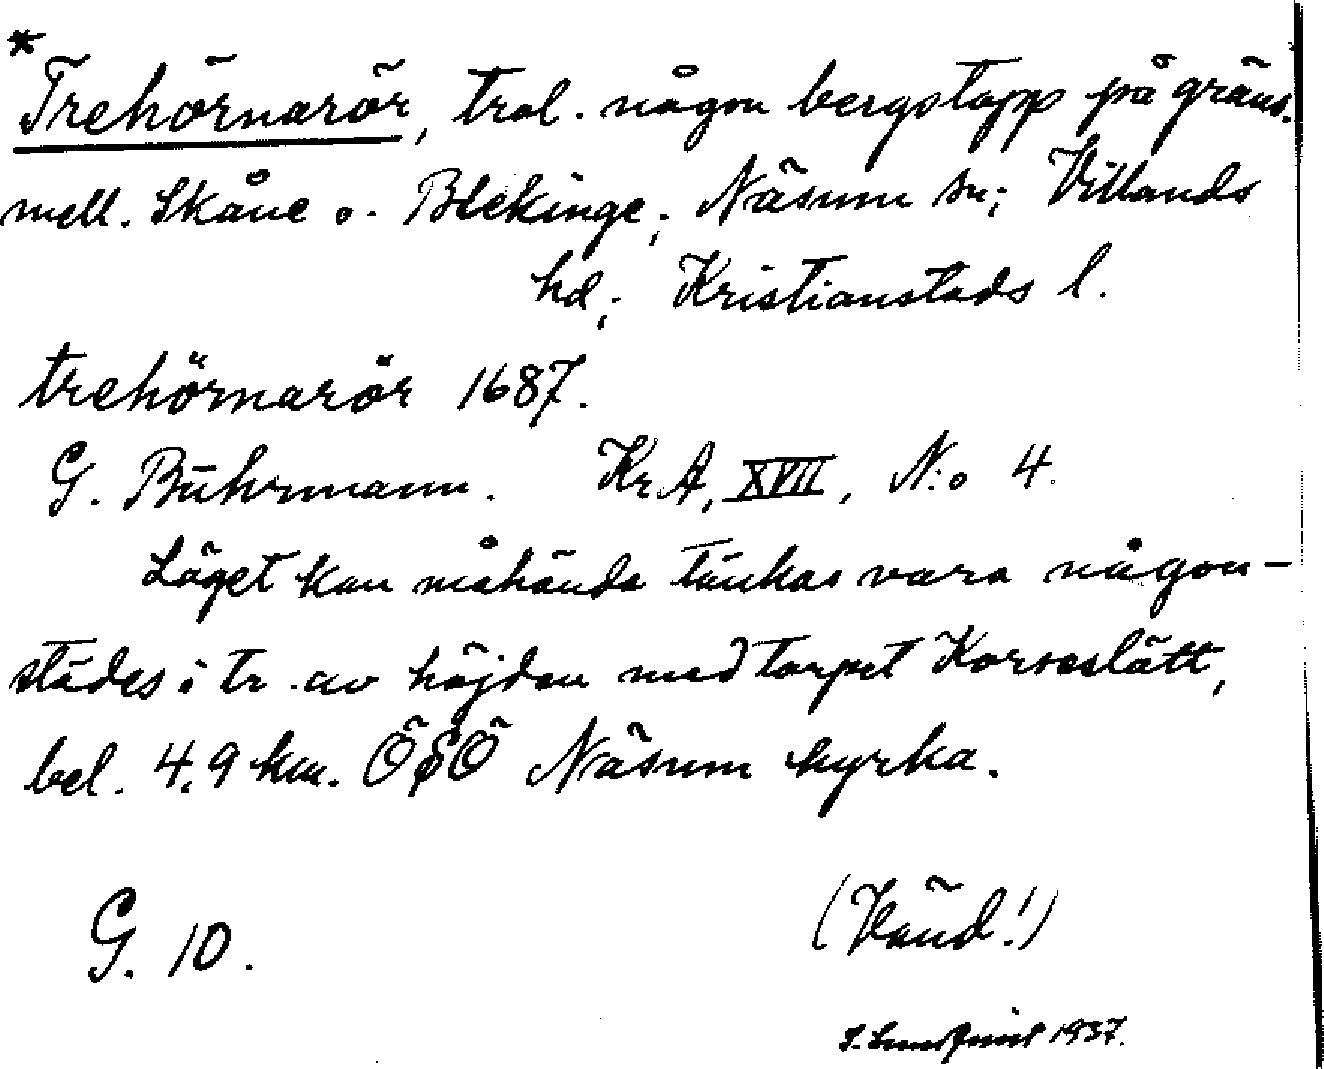 *
Trehörnarör, trol. någon bergstopp på gräns.
mell. Skåne o. Blekinge; Näsum sn; Villands
hd; Kristianstads l.
trehörnarör 1687.
G. Buhrmann. Kr.A, XVII, N:o 4.
Läget kan måhända tänkas vara någon-
städes i tr. av höjden med torpet Korsaslätt,
bel. 4,9 km. ÖSÖ Näsum kyrka.
G. 10.
(Vänd!)
1937.